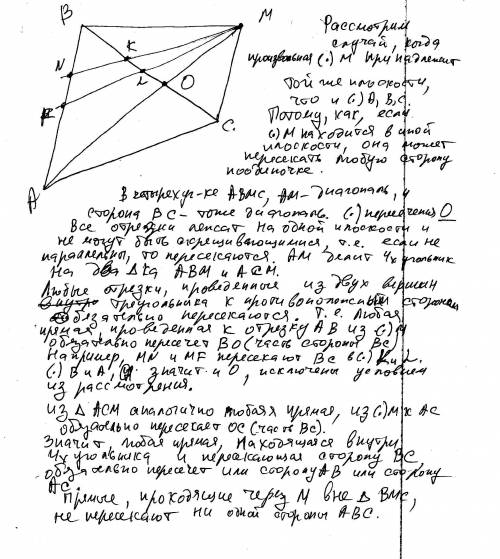 B
M
N
K
L
O
F
C
A
Рассмотрим
случай, когда
произвольная (.) М принадлежит
той же плоскости,
что и (.) А, В, С.
Потому, как, если
(.) М находится в иной
плоскости, она может
пересекать любую сторону
поодиночке.
В четырехуг-ке АВМС, АМ-диагональ, и
сторона ВС - тоже диагональ. (.) пересечения О
Все отрезки лежат на одной плоскости и
не могут быть скрещивающимися, т.е. если не
параллельны, то пересекаются. АМ делит 4х угольник
на два Δка АВМ и АСМ.
Любые отрезки, проведенные из двух вершин
треугольника к противоположным сторонам
обязательно пересекаются. Т.е. любая
прямая, проведенная к отрезку АВ из (.) М
обязательно пересечет ВО (часть стороны ВС)
Например, MN и MF пересекают ВС в (.) K и L.
(.) В и А, значит и О, исключены условием
из рассмотрения.
Из Δ АСМ аналогично любая прямая, из (.) М к АС
обязательно пересекает ОС (часть ВС).
Значит, любая прямая, находящаяся внутри
4х угольника и пересекающая сторону ВС
обязательно пересечет или сторону АВ или сторону
АС.
Прямые, проходящие через М вне Δ ВМС,
не пересекают ни одной стороны АВС.